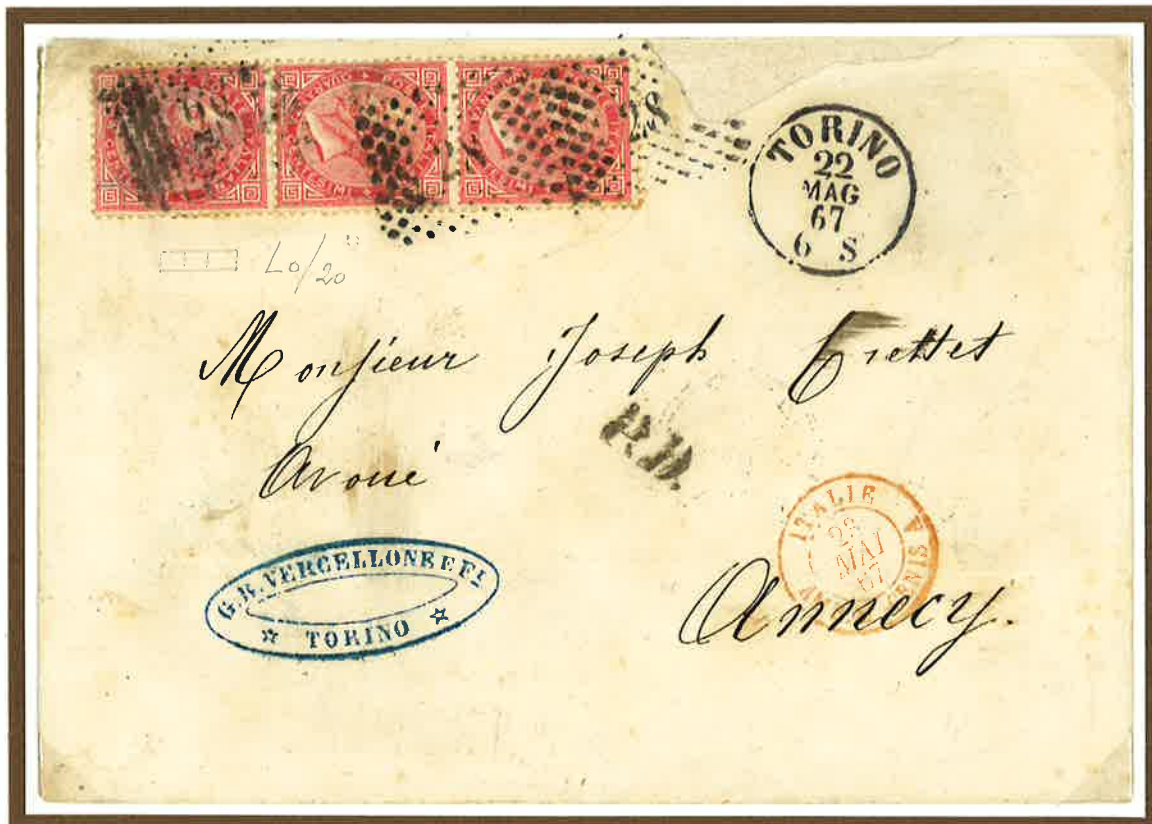 28
TORINO
22
MAG
67
6 S
L0/20
Monsieur Joseph
Avoué
P.D.
ITALIE
23
MAI
67
G.B. VERCELLONE E FI
TORINO
Annecy.